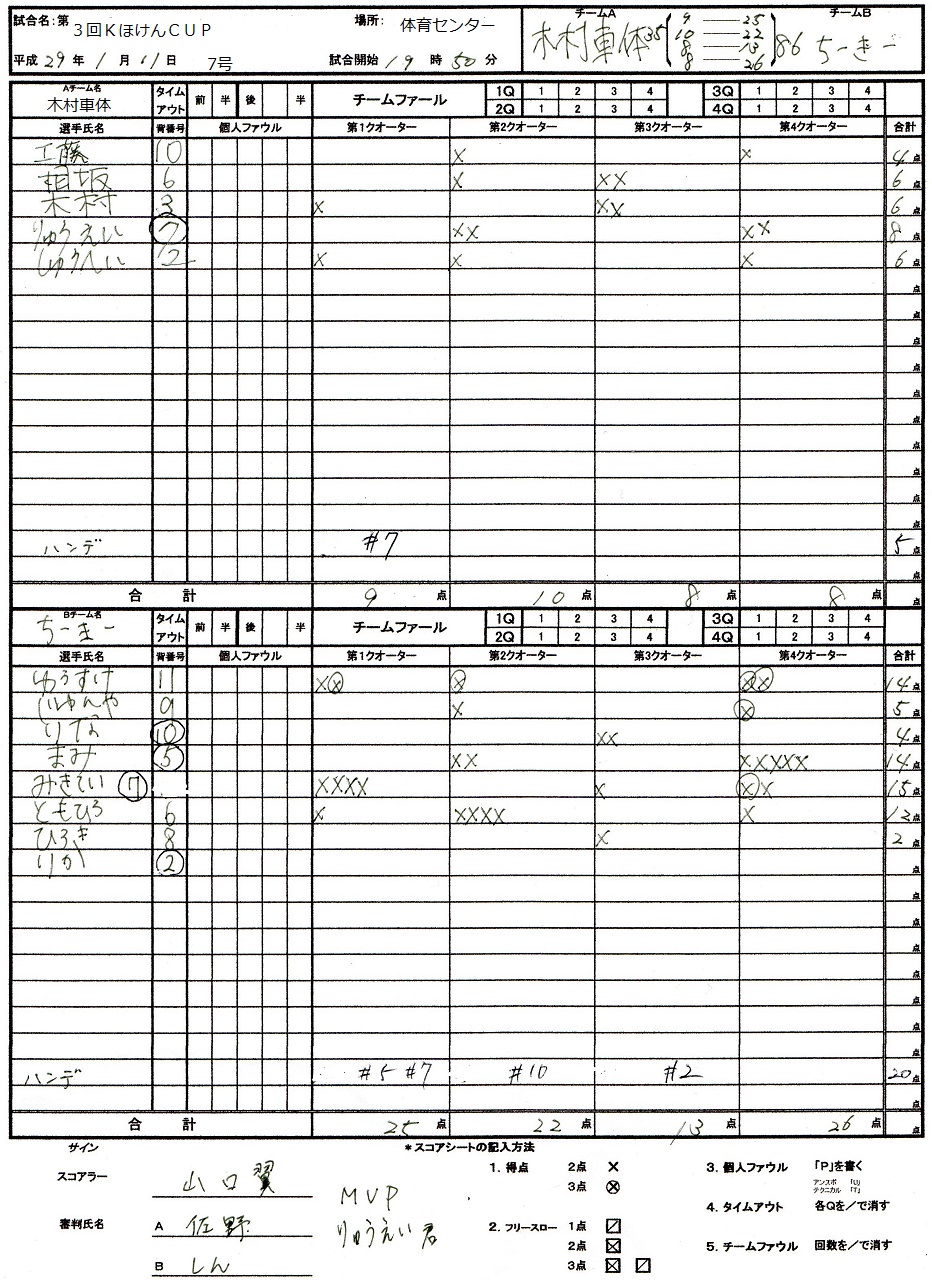 試合名:第 3回KほけんCUP 場所: 体育センター
平成 29 年 1 月 11 日 7号 試合開始 19 時 50 分
チームA チームB
木村車体 35 86 ちーまー
9 — 25
10 — 22
8 — 13
8 — 26
Aチーム名 木村車体 タイムアウト 前 半 後 半 チームファール 1Q 1 2 3 4 3Q 1 2 3 4
2Q 1 2 3 4 4Q 1 2 3 4
選手氏名 背番号 個人ファウル 第1クオーター 第2クオーター 第3クオーター 第4クオーター 合計
工藤 10 X X 4点
相坂 6 X XX 6点
木村 3 X XX 6点
りゅうえい 7 XX XX 8点
しゅうへい 2 X X X 6点
ハンデ #7 5点
合 計 9 点 10 点 8 点 8 点 点
Bチーム名 ちーまー タイムアウト 前 半 後 半 チームファール 1Q 1 2 3 4 3Q 1 2 3 4
2Q 1 2 3 4 4Q 1 2 3 4
選手氏名 背番号 個人ファウル 第1クオーター 第2クオーター 第3クオーター 第4クオーター 合計
ゆうすけ 11 XⓍ Ⓧ ⓍⓍ 14点
じゅんや 9 X Ⓧ 5点
りな 10 XX 4点
まみ 5 XX XXXXX 14点
みきてい 7 XXXX X ⓍX 15点
ともひろ 6 X XXXX X 12点
ひろき 8 X 2点
りか 2 点
ハンデ #5 #7 #10 #2 20点
合 計 25 点 22 点 13 点 26 点 点
サイン *スコアシートの記入方法
スコアラー 山口翼
審判氏名 A 佐野
B しん
MVP
りゅうえい君
1. 得点 2点 ×
3点 ⊗
2. フリースロー 1点 ☐
2点 ☒
3点 ☒ ☐
3. 個人ファウル 「P」を書く
アンスポ 「U」
テクニカル 「T」
4. タイムアウト 各Qを/で消す
5. チームファウル 回数を/で消す